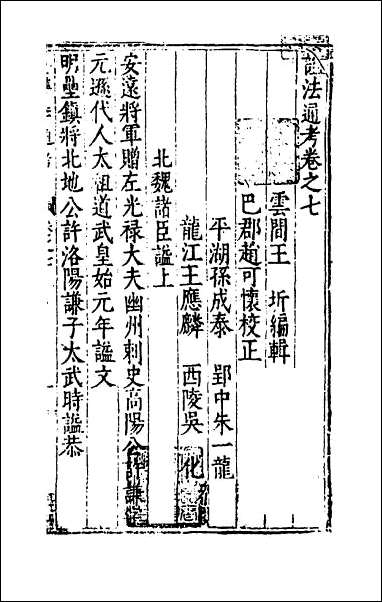 諡法通考卷之七
雲間王 圻編輯
巴郡趙可懷校正
平湖孫成泰 郢中朱一龍
龍江王應麟 西陵吳 化
北魏諸臣諡上
安遠將軍贈左光禄大夫幽州刺史高陽公許謙字
元遜代人太祖道武皇始元年諡文
明壘鎮將北地公許洛陽謙子太武時諡恭